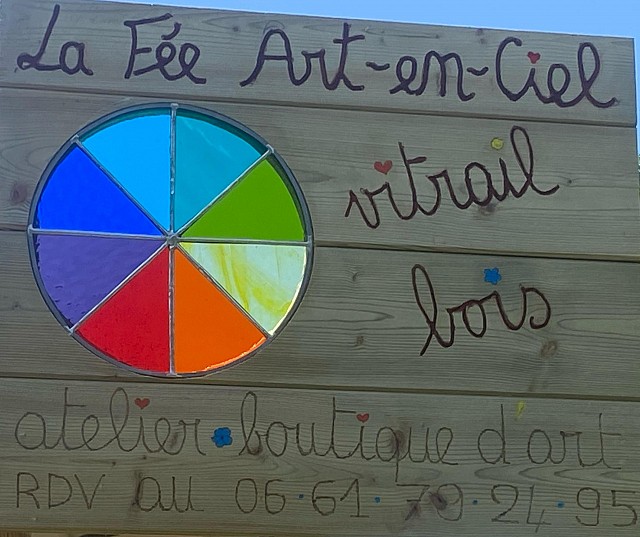 La Fée Art-en-Ciel
vitrail
bois
atelier boutique d'art
RDV au 06·61·79·24·95